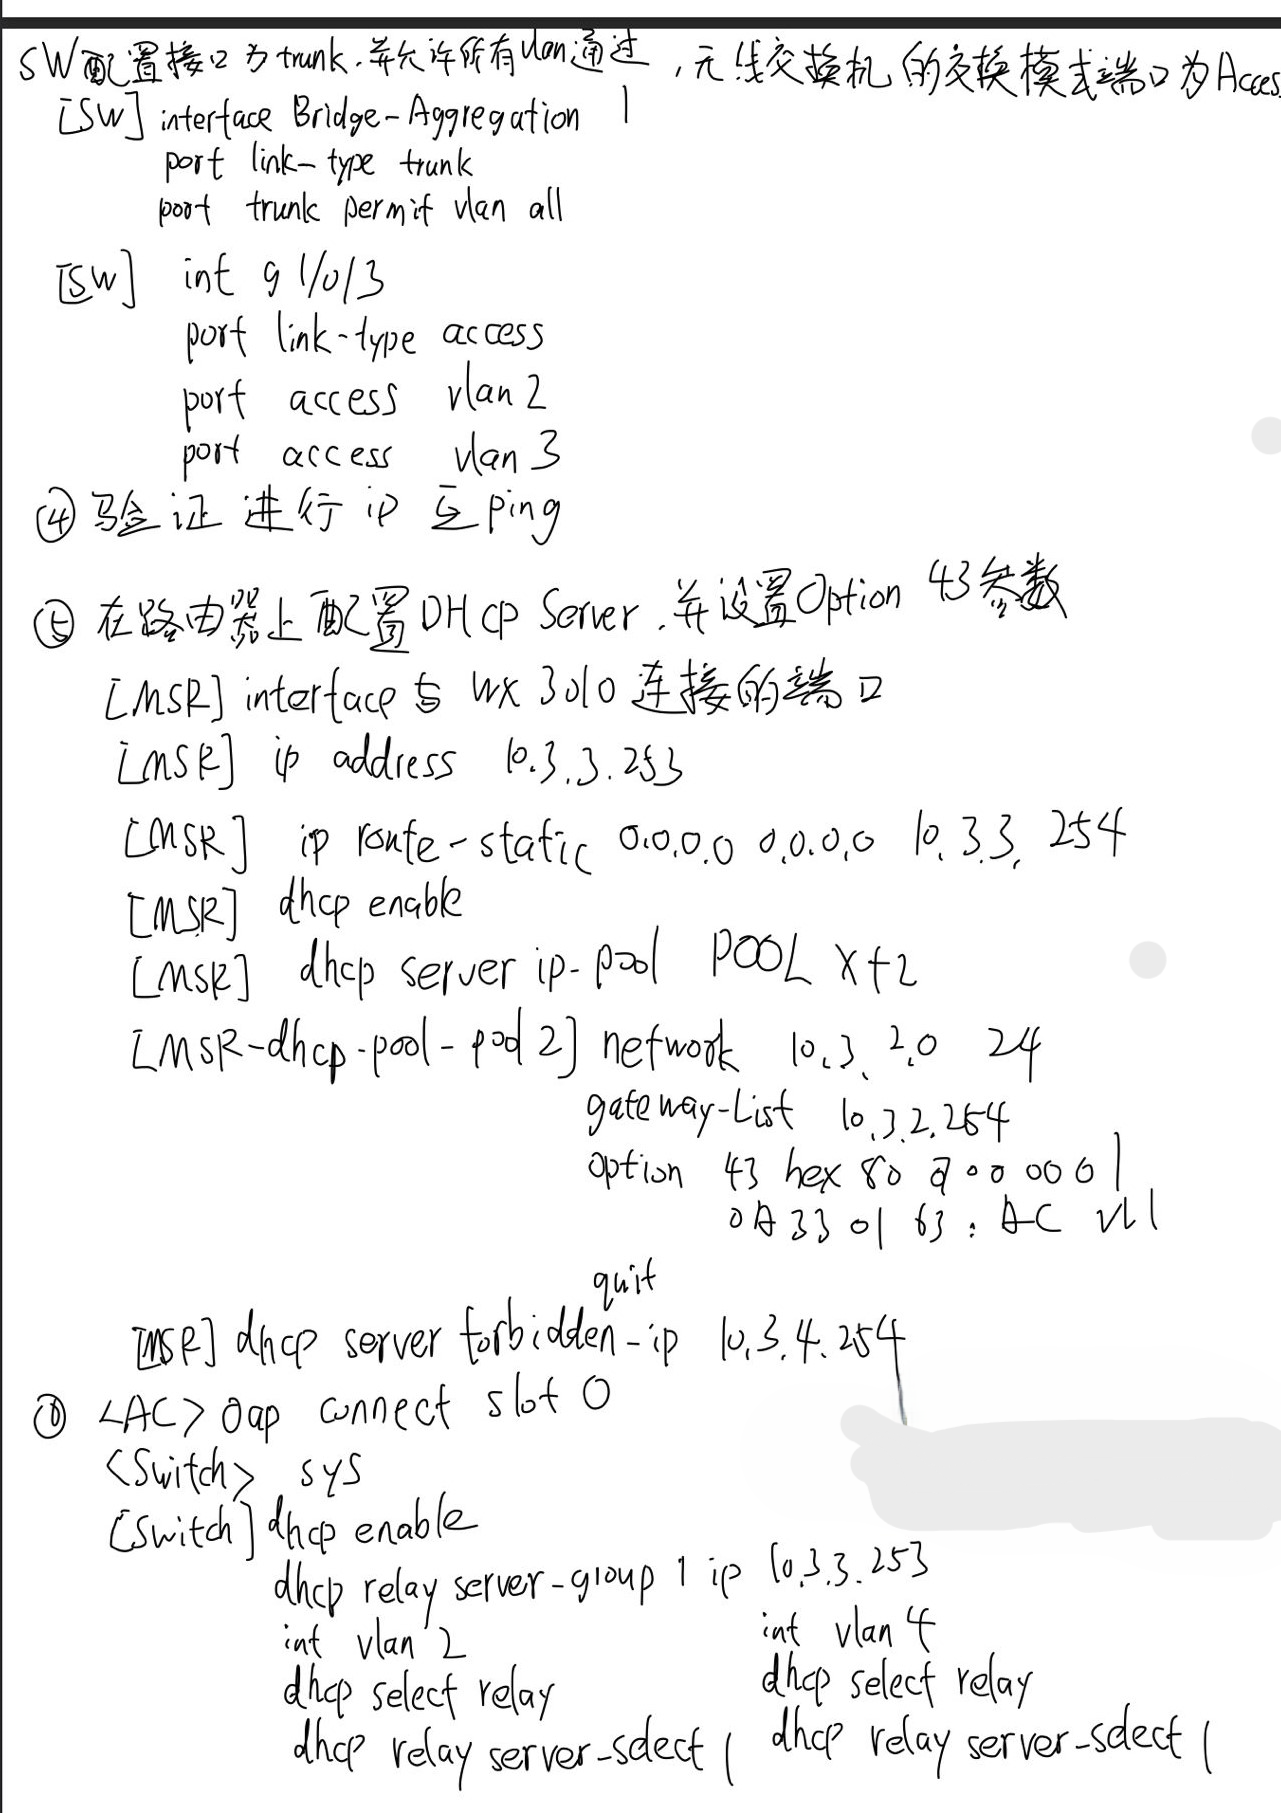 SW配置接口为trunk.并允许所有vlan通过,无线交换机的交换模式端口为Acces
[SW] interface Bridge-Aggregation 1
port link-type trunk
port trunk permit vlan all
[SW] int g 1/0/3
port link-type access
port access vlan 2
port access vlan 3
④验证 进行 ip 互ping
⑤在路由器上配置DHcp Server.并设置Option 43参数
[MSR] interface与 WX 3010连接的端口
[MSR] ip address 10.3.3.253
[MSR] ip route-static 0.0.0.0 0.0.0.0 10.3.3.254
[MSR] dhcp enable
[MSR] dhcp server ip-pool POOL X+2
[MSR-dhcp-pool-pool 2] network 10.3.2.0 24
gateway-List 10.3.2.254
option 43 hex 80 00 00 01
0A 33 01 63 : AC VL1
quit
[MSR] dhcp server forbidden-ip 10.3.4.254
⑥ <AC> oap connect slot 0
<Switch> sys
[Switch] dhcp enable
dhcp relay server-group 1 ip 10.3.3.253
int vlan 2 int vlan 4
dhcp select relay dhcp select relay
dhcp relay server-select 1 dhcp relay server-select 1